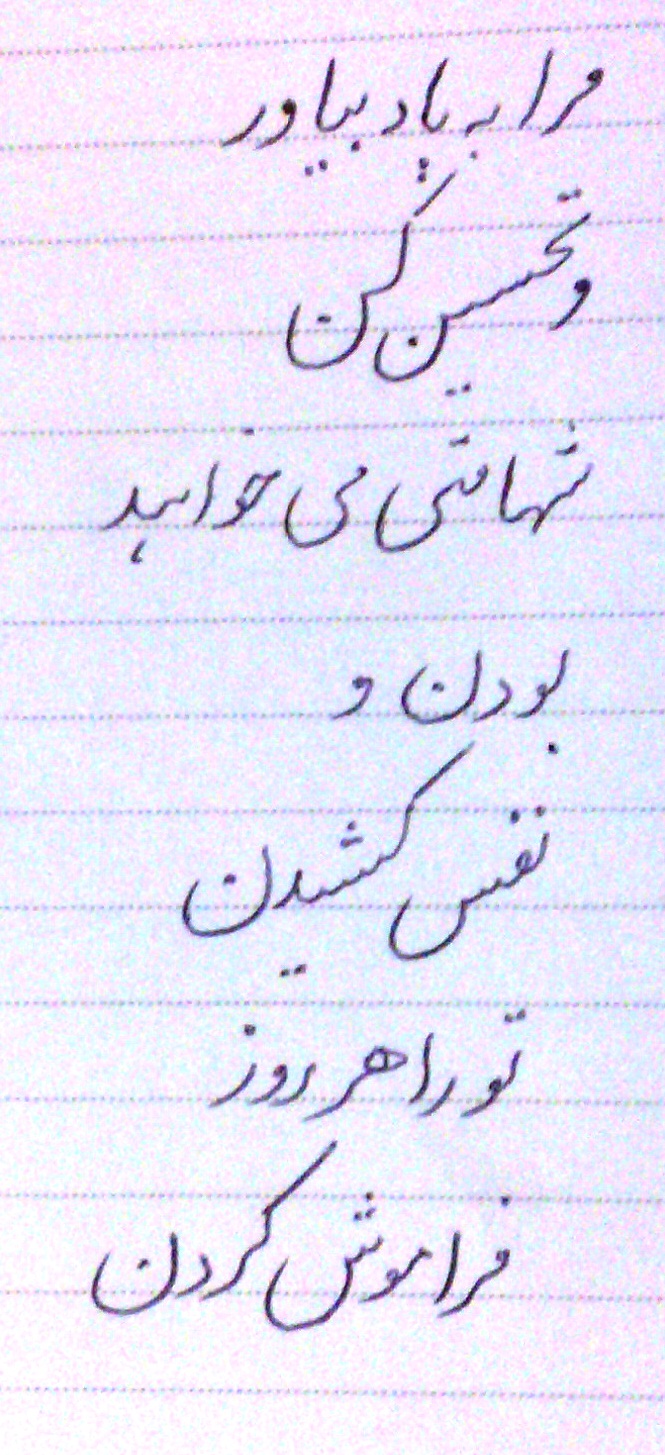 مرا به یاد بیاور
و تحسین کن
شهامتی می خواهد
بودن و
نفس کشیدن
تو را هر روز
فراموش کردن